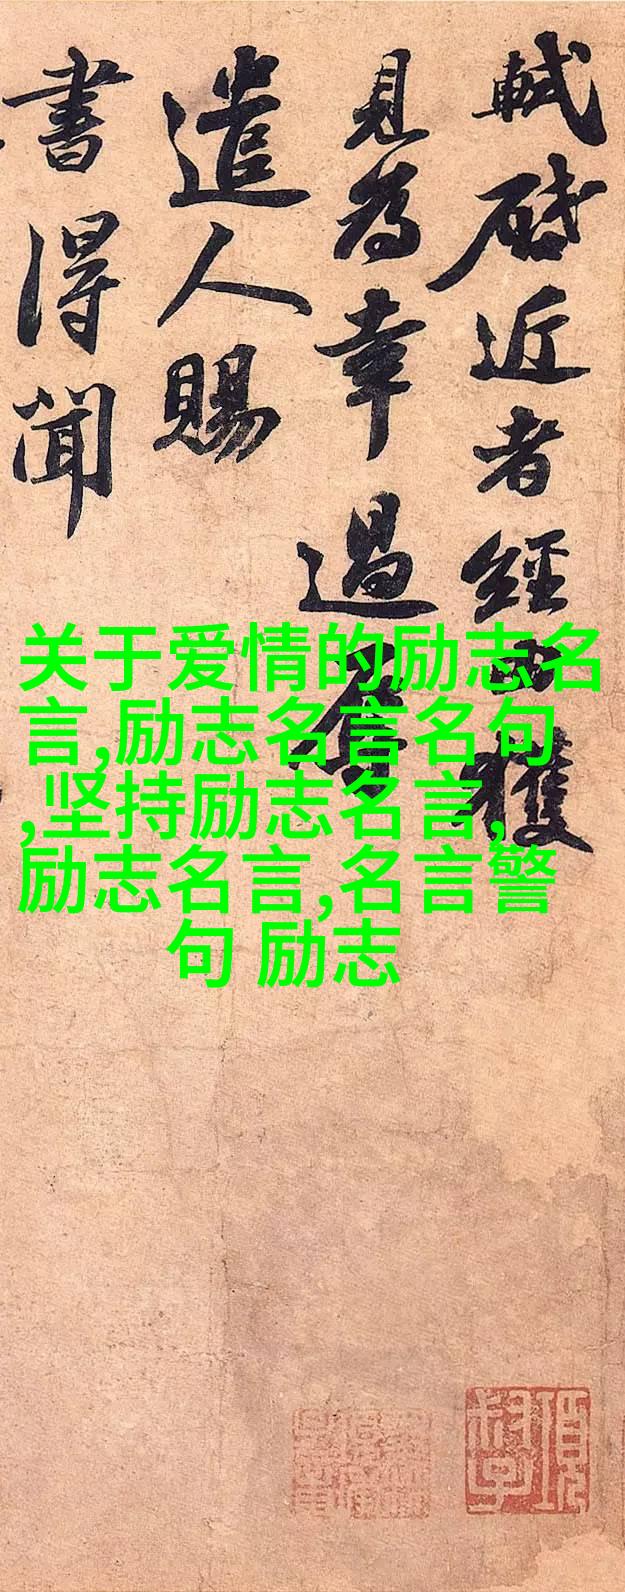 軾啓近者經由獲
見為幸過辱
遣人賜
書得聞
关于爱情的励志名
言,励志名言名句
,坚持励志名言,
励志名言,名言警
句 励志